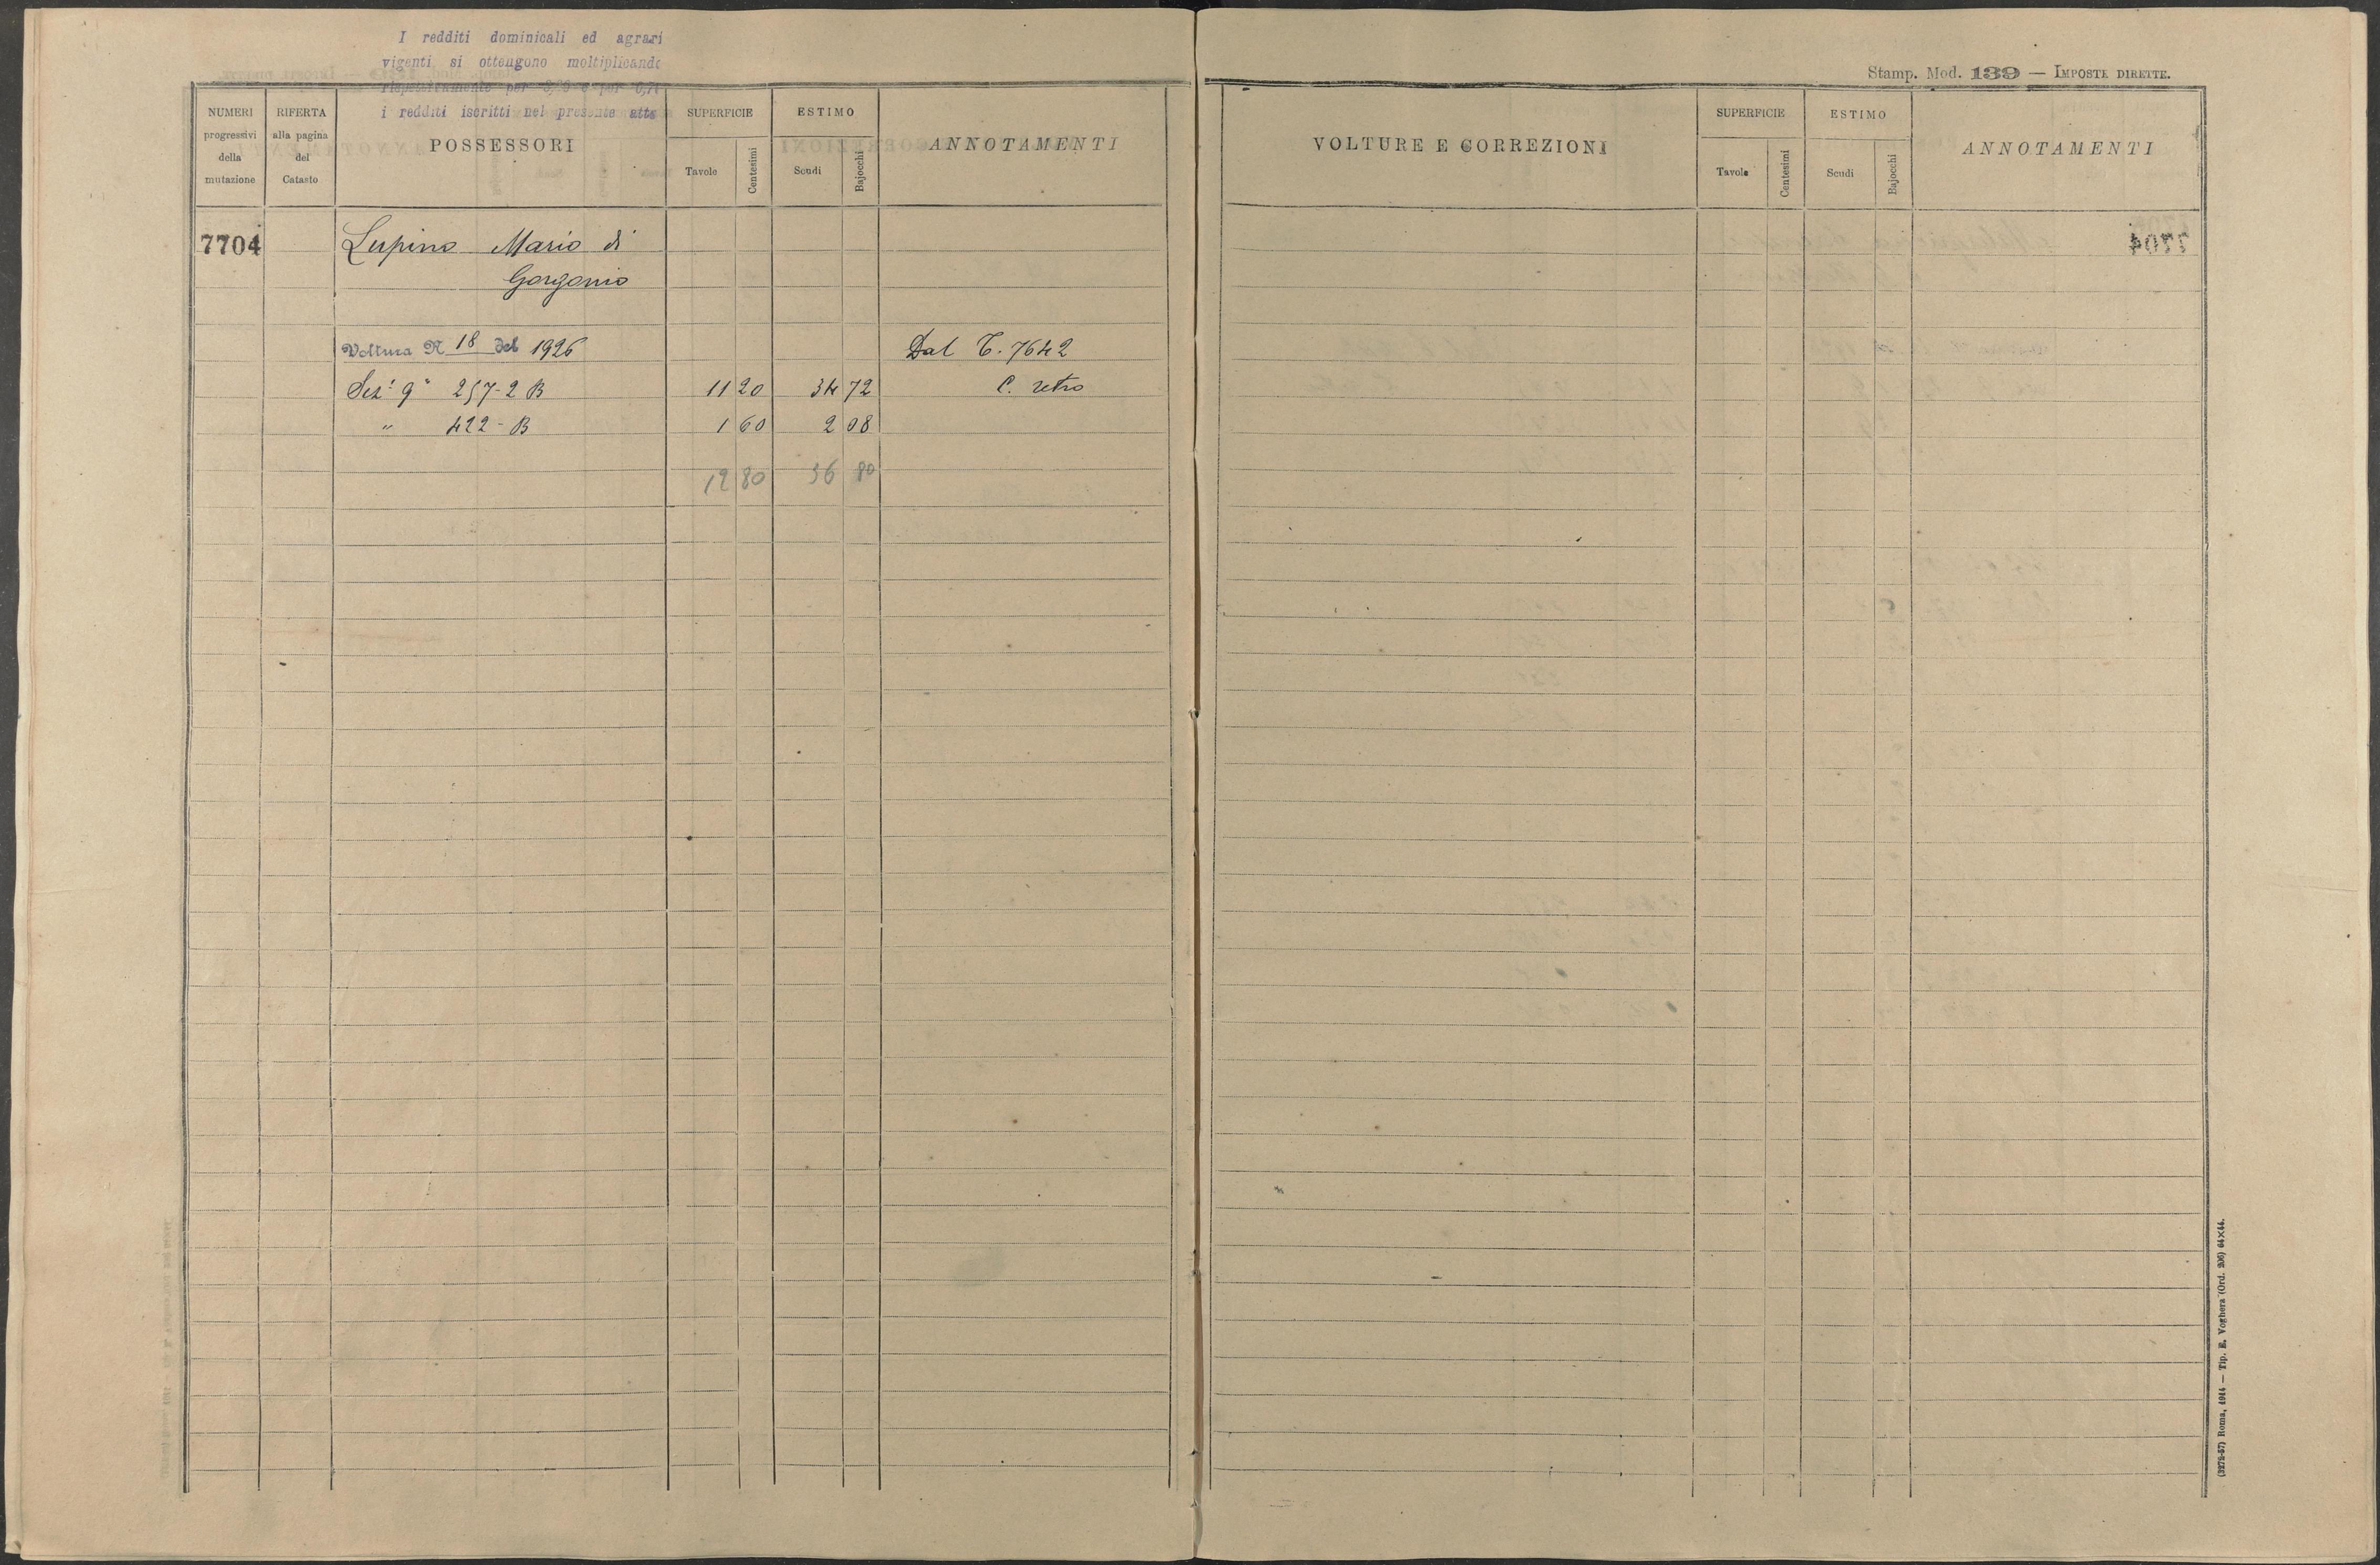 I redditi dominicali ed agrari
vigenti si ottengono moltiplicando
rispettivamente per
i redditi iscritti nel presente atto
Stamp. Mod. 139 — IMPOSTE DIRETTE.
NUMERI progressivi della mutazione
RIFERTA alla pagina del Catasto
POSSESSORI
SUPERFICIE
Tavole Centesimi
ESTIMO
Scudi Bajocchi
ANNOTAMENTI
VOLTURE E CORREZIONI
SUPERFICIE
Tavole Centesimi
ESTIMO
Scudi Bajocchi
ANNOTAMENTI
7704 Lupino Mario di
Gorgonio
Voltura N 18 del 1926 Dal T. 7642
Sez. 9ª 257-2 B 11 20 34 72 C. retro
" 422-B 1 60 2 08
12 80 36 80
(3272-57) Roma, 1914 — Tip. E. Voghera (Ord. 206) 64×44.